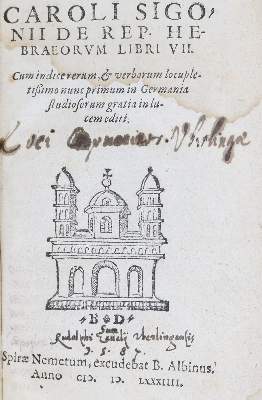 CAROLI SIGO,
NII DE REP. HE-
BRAEORVM LIBRI VII.
Cum indice rerum, & verborum locuple-
tissimo nunc primum in Germania
studiosorum gratia in lu-
cem editi.
Loci Capucinor. Vberlingæ
B D
Sum
Rudolphi Vberlingensis
1587.
Spiræ Nemetum, excudebat B. Albinus.
Anno CIↃ. IↃ. LXXXIIII.